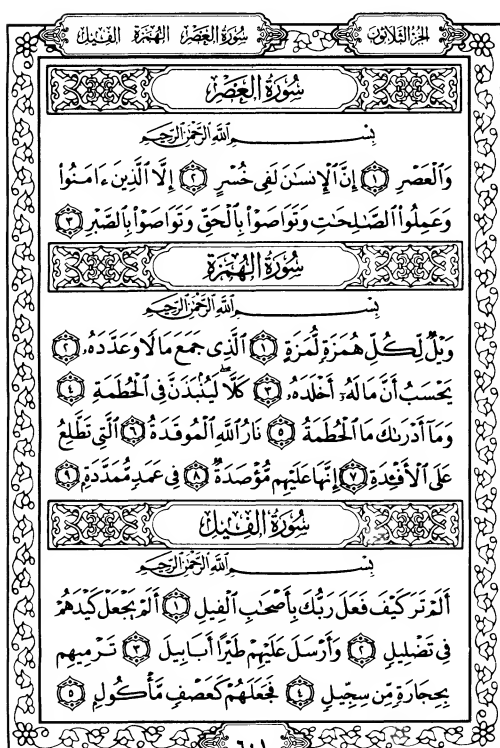 سُورَةُ العَصْرِ الهُمَزَةِ الفِيلِ
الجُزءُ الثَّلَاثُونَ
سُورَةُ العَصْرِ
بِسْمِ ٱللَّهِ ٱلرَّحْمَٰنِ ٱلرَّحِيمِ
وَٱلْعَصْرِ ۝١ إِنَّ ٱلْإِنسَٰنَ لَفِى خُسْرٍ ۝٢ إِلَّا ٱلَّذِينَ ءَامَنُوا۟
وَعَمِلُوا۟ ٱلصَّٰلِحَٰتِ وَتَوَاصَوْا۟ بِٱلْحَقِّ وَتَوَاصَوْا۟ بِٱلصَّبْرِ ۝٣
سُورَةُ الهُمَزَةِ
بِسْمِ ٱللَّهِ ٱلرَّحْمَٰنِ ٱلرَّحِيمِ
وَيْلٌ لِّكُلِّ هُمَزَةٍ لُّمَزَةٍ ۝١ ٱلَّذِى جَمَعَ مَالًا وَعَدَّدَهُۥ ۝٢
يَحْسَبُ أَنَّ مَالَهُۥٓ أَخْلَدَهُۥ ۝٣ كَلَّا ۖ لَيُنۢبَذَنَّ فِى ٱلْحُطَمَةِ ۝٤
وَمَآ أَدْرَىٰكَ مَا ٱلْحُطَمَةُ ۝٥ نَارُ ٱللَّهِ ٱلْمُوقَدَةُ ۝٦ ٱلَّتِى تَطَّلِعُ
عَلَى ٱلْأَفْـِٔدَةِ ۝٧ إِنَّهَا عَلَيْهِم مُّؤْصَدَةٌ ۝٨ فِى عَمَدٍ مُّمَدَّدَةٍۭ ۝٩
سُورَةُ الفِيلِ
بِسْمِ ٱللَّهِ ٱلرَّحْمَٰنِ ٱلرَّحِيمِ
أَلَمْ تَرَ كَيْفَ فَعَلَ رَبُّكَ بِأَصْحَٰبِ ٱلْفِيلِ ۝١ أَلَمْ يَجْعَلْ كَيْدَهُمْ
فِى تَضْلِيلٍ ۝٢ وَأَرْسَلَ عَلَيْهِمْ طَيْرًا أَبَابِيلَ ۝٣ تَرْمِيهِم
بِحِجَارَةٍ مِّن سِجِّيلٍ ۝٤ فَجَعَلَهُمْ كَعَصْفٍ مَّأْكُولٍۭ ۝٥
٦٠١